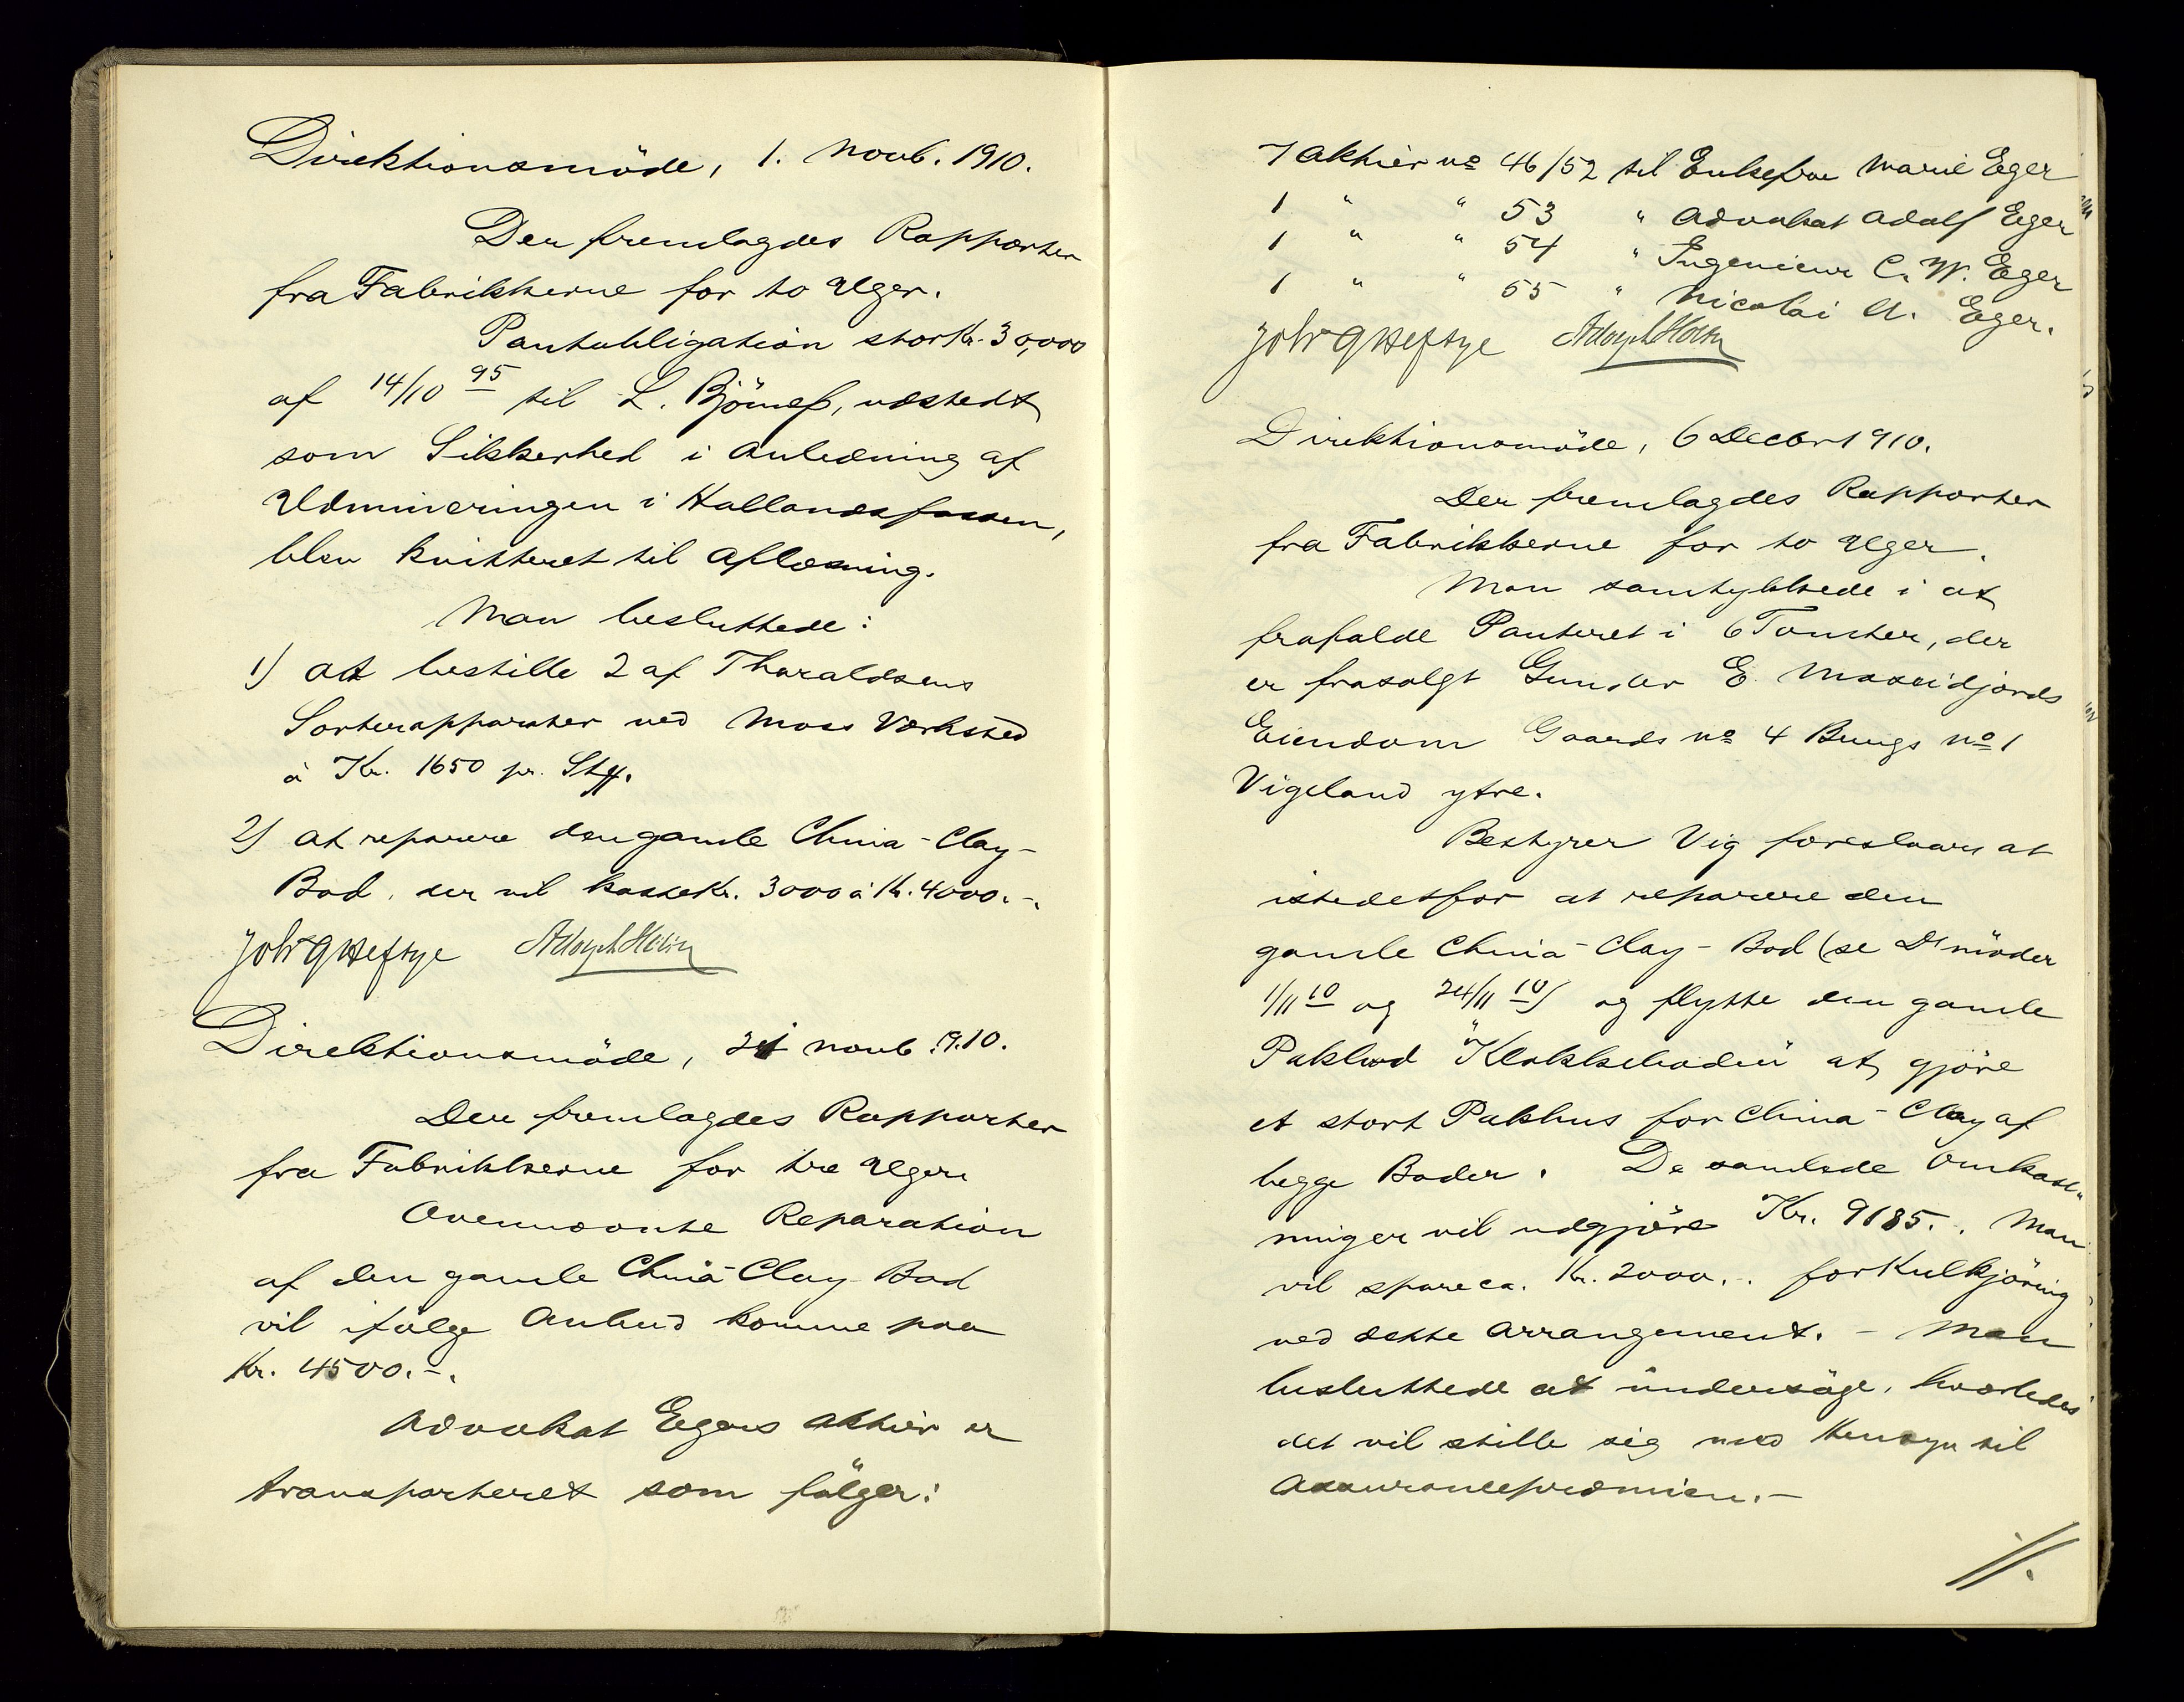 Direktionsmöde, 1. Novb. 1910.
Der fremlagdes Rapporter
fra Fabrikkerne for to Uger.
Pantobligation stor Kr. 30,000
af 14/10 95 til L. Björness, udstedt
som Sikkerhed i Anledning af
Udmineringen i Hallandsfossen,
blev kvitteret til Aflæsning.
Man besluttede:
1) At bestille 2 af Tharaldsens
Sorterapparater ved Moss Værksted
à Kr. 1650 pr. Stk.
2) at reparere den gamle China-Clay-
Bod, der vil koste Kr. 3000 à Kr. 4000.-.
Joh G Heftye Adolph Holm
Direktionsmöde, 24 Novb. 1910.
Der fremlagdes Rapporter
fra Fabrikkerne for tre Uger.
Ovennævnte Reparation
af den gamle China-Clay-Bod
vil ifölge Anbud komme paa
Kr. 4500.-.
Advokat Egers Aktier er
transporteret som fölger:
7 Aktier No 46/52 til Enkefru Marie Eger
1 " " 53 " Advokat Adolf Eger
1 " " 54 " Ingenieur C. W. Eger
1 " " 55 " Nicolai A. Eger.
Joh G Heftye Adolph Holm
Direktionsmöde, 6 Decbr 1910.
Der fremlagdes Rapporter
fra Fabrikkerne for to Uger.
Man samtykkede i at
frafalde Panteret i 6 Tomter, der
er frasolgt Gunder E. Moseidjords
Eiendom Gaards No 4 Brugs No 1
Vigeland ytre.
Bestyrer Vig foreslaar at
istedetfor at reparere den
gamle China-Clay-Bod (se Dr möder
1/11 10 og 24/11 10) og flytte den gamle
Pakbod "Klokkeboden" at gjöre
et stort Pakhus for China-Clay af
begge Boder. De samlede Omkost-
ninger vil udgjöre Kr. 9185.-. Man
vil spare ca. Kr. 2000.-. for Kulkjöring
ved dette Arrangement. - Man
besluttede at undersöge, hvorledes
det vil stille sig med Hensyn til
Assurancepræmien.-
//.